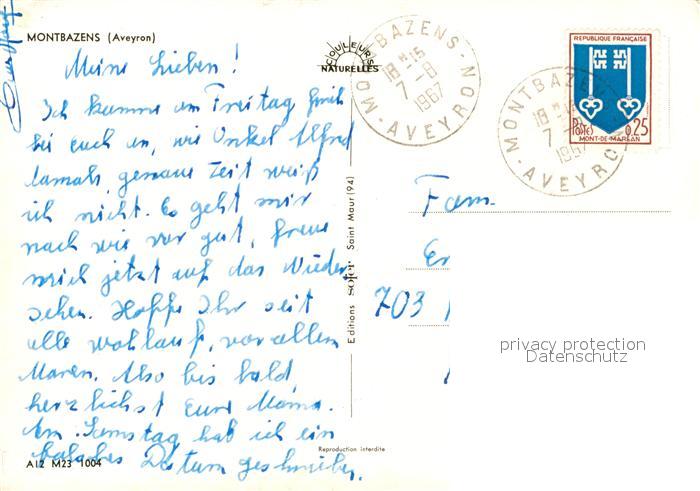 MONTBAZENS (Aveyron)
COULEURS
NATURELLES
MONTBAZENS
18 H 15
7-8
1967
AVEYRON
MONTBAZENS
18 H 15
7-8
1967
AVEYRON
REPUBLIQUE FRANÇAISE
Postes
0,25
MONT-DE-MARSAN
Meine Lieben!
Ich komme am Freitag früh
bei euch an, wie Onkel Alfred
damals, genaue Zeit weiß
ich nicht. Es geht mir
nach wie vor gut, freue
mich jetzt auf das Wieder-
sehen. Hoffe Ihr seit
alle wohlauf, vor allem
Maren. Also bis bald
herzlichst Eure Mama.
Am Samstag hab ich ein
falsches Datum geschrieben.
Editions sofer Saint Maur (94)
Fam.
Er
703
privacy protection
Datenschutz
Reproduction interdite
A12 M23 1004